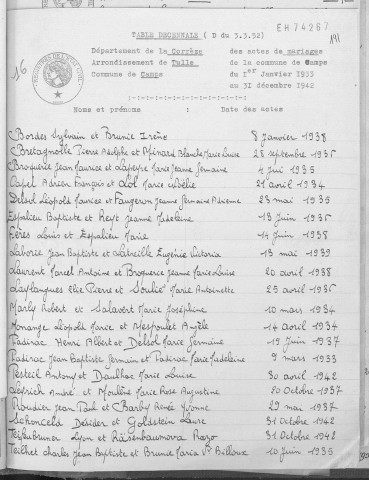 EH74267
191
TABLE DECENNALE ( D du 3.3.52)
Département de la Corrèze des actes de mariages
Arrondissement de Tulle de la commune de Camps
Commune de Camps du Ier Janvier 1933
au 31 décembre 1942
16
Noms et prénoms : Date des actes
Bordes Sylvain et Brunie Irène 8 janvier 1938
Bretagnolle Pierre Adolphe et Blanche Marie Louise 28 septembre 1935
Broquerie Jean Maurice et Lapeyre Marie Jeanne Germaine 4 juin 1935
Capel Adrien François et Lol Marie 21 avril 1934
Delsol Léopold Maurice et Faugeron Jeanne Germaine 23 mai 1935
Espalieu Baptiste et Reyt Jeanne Madeleine 18 juin 1935
Fères Louis et Espalieu Marie 14 juin 1938
Laborie Jean Baptiste et Latreille Eugénie Victoria 13 mai 1939
Laurent Marcel Antoine et Broquerie Jeanne Marie Louise 20 avril 1938
Laylangues Elie Pierre et Soulié Marie Antoinette 25 avril 1935
Marly Robert et Salavert Marie Joséphine 10 mars 1934
Monange Léopold Marie et Mespoulet Angèle 14 avril 1934
Padirac Henri Albert et Delsol Marie Germaine 19 juin 1937
Padirac Jean Baptiste Germain et Padirac Marie Madeleine 9 mars 1933
Pesteil Antony et Daulhac Marie Louise 30 avril 1942
André et Moulène Marie Rose Augustine 20 octobre 1937
Roudier Jean Paul et Barby Renée Yvonne 29 mai 1937
Schonceld Désider et Goldstein Laure 31 octobre 1942
Lyon et Rasenbaumova Rozo 31 octobre 1942
Teilhet Charles Jean Baptiste et Brunie Maria Vve Billoux 10 juin 1935